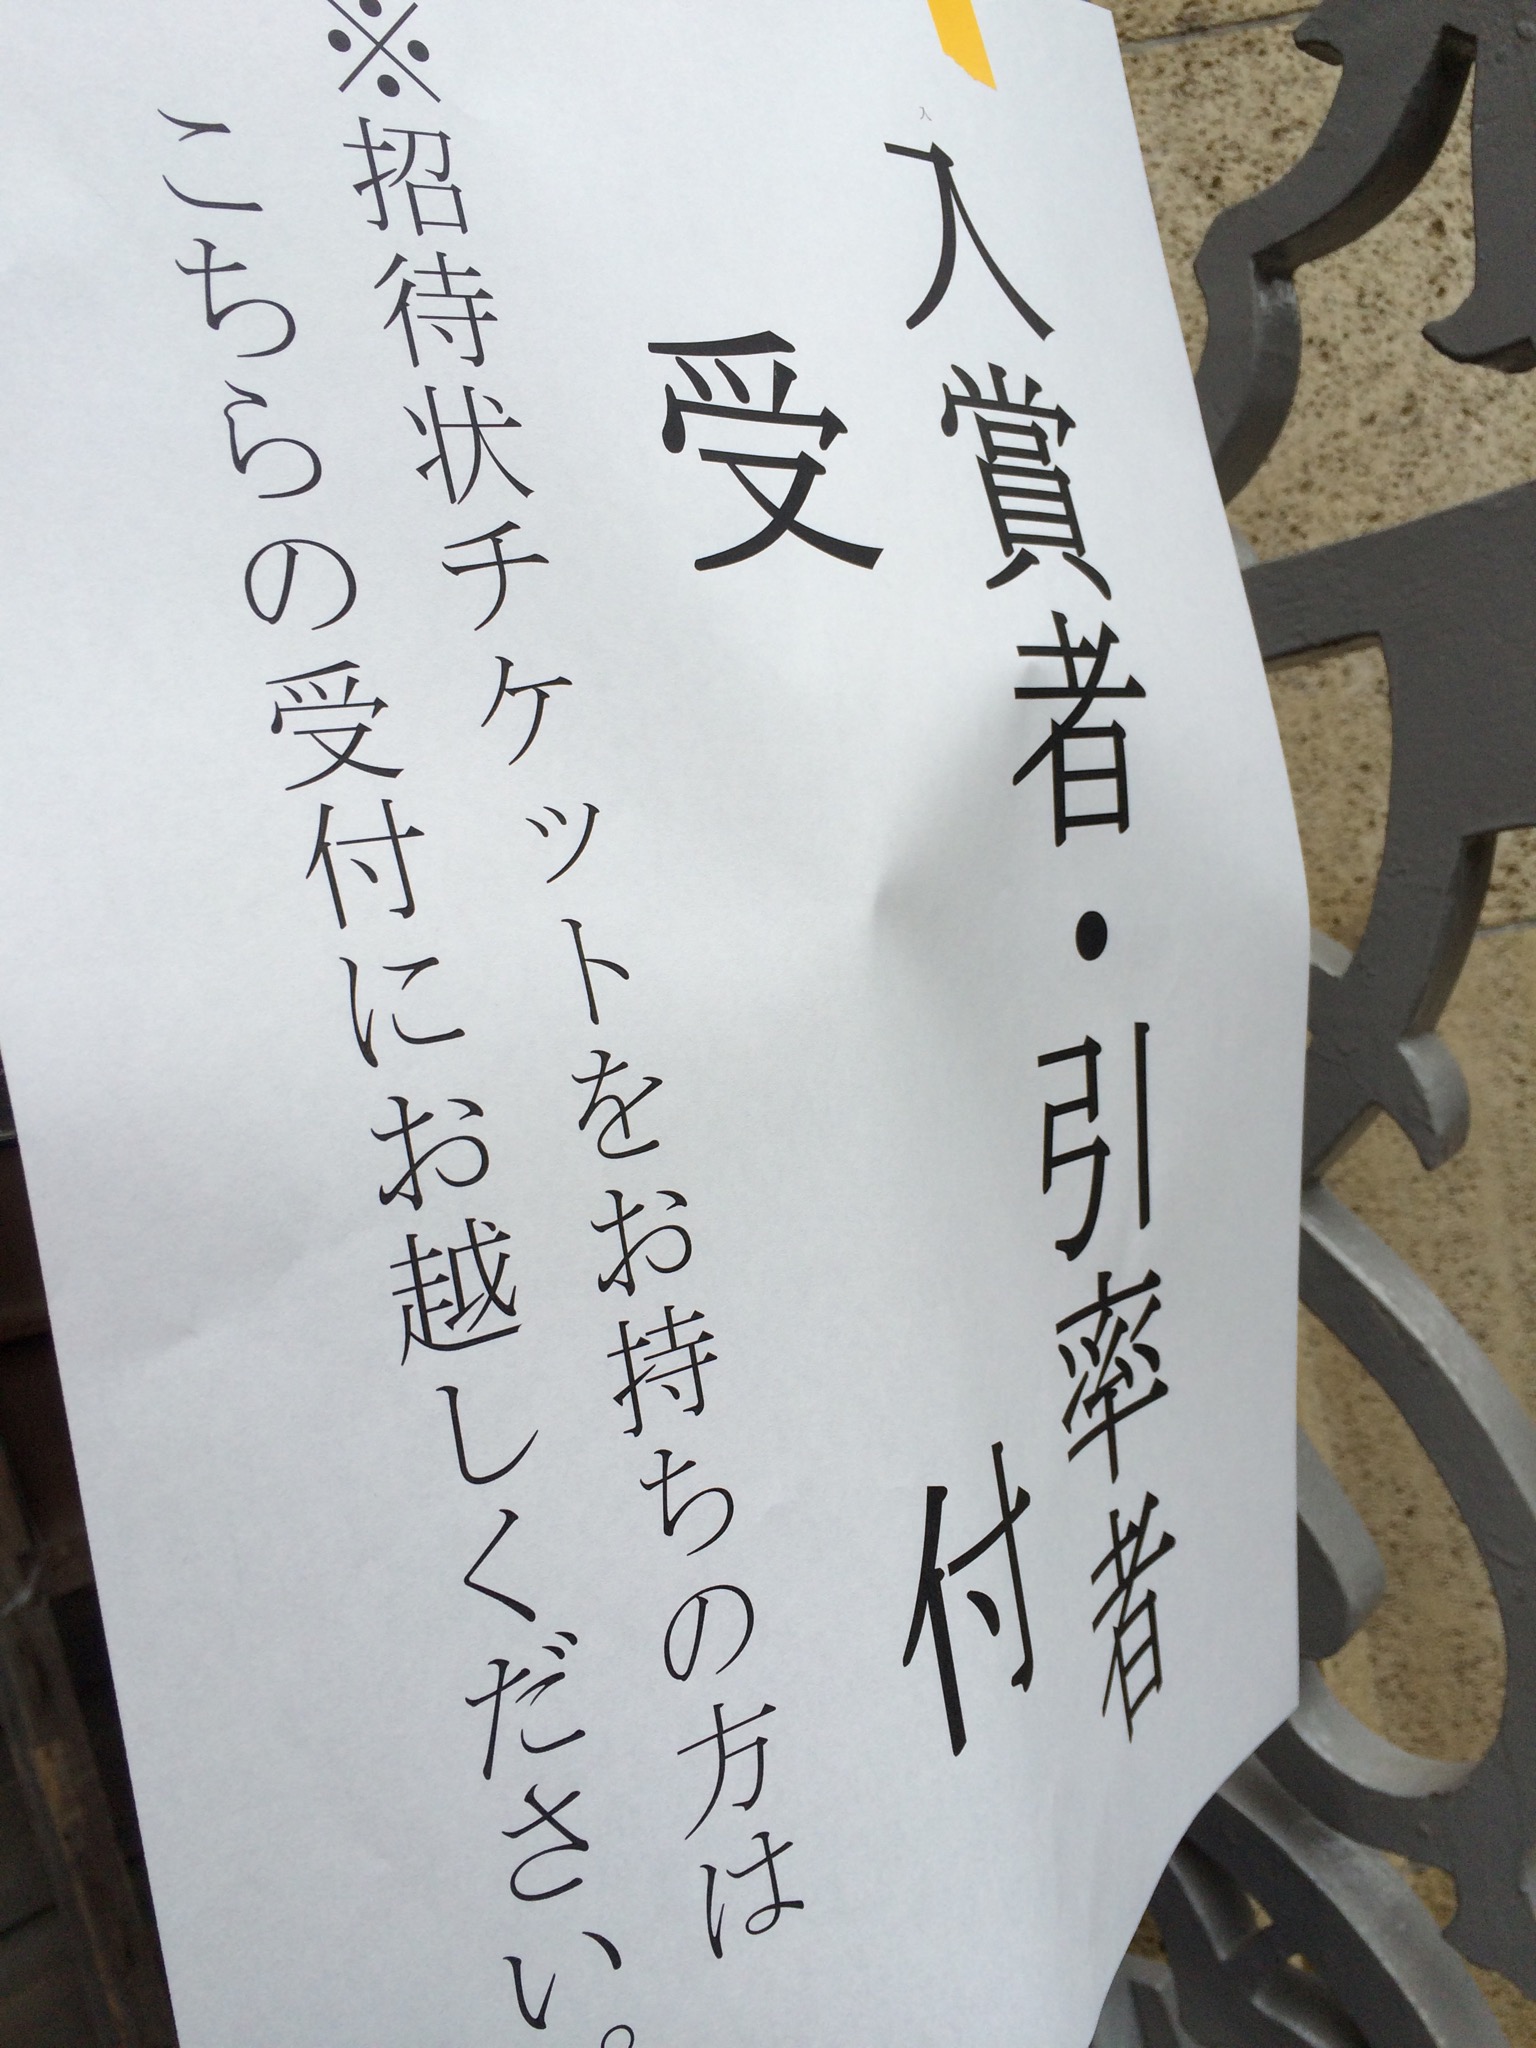 入賞者・引率者
受付
※招待状チケットをお持ちの方は
こちらの受付にお越しください。